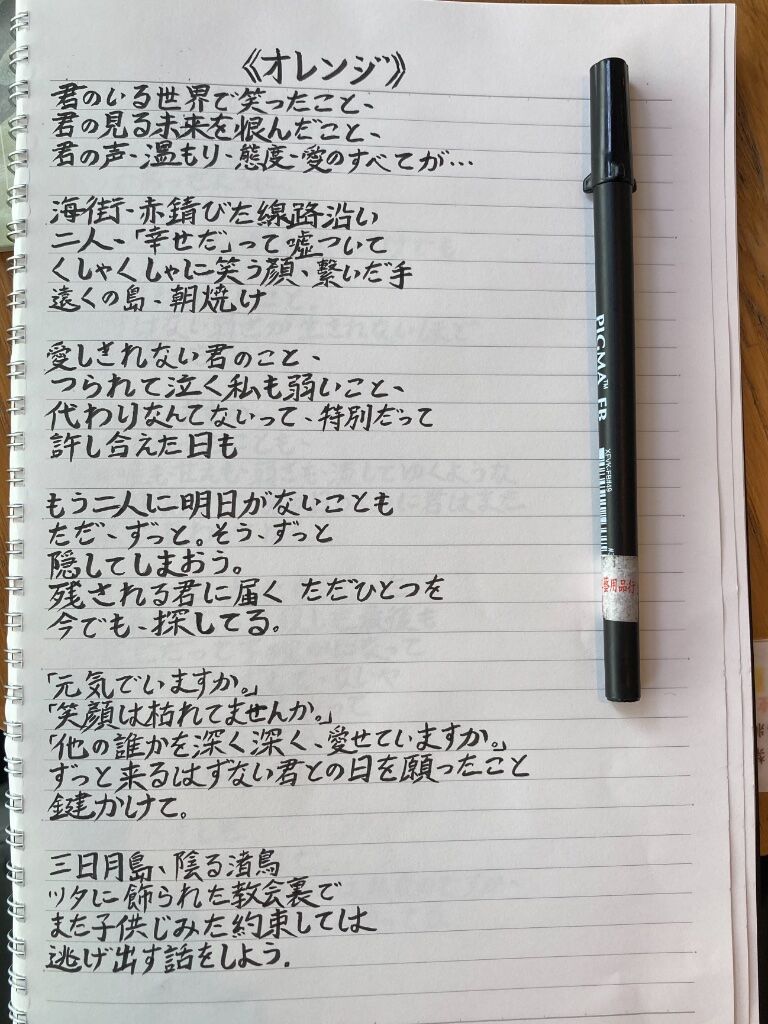 《オレンジ》
君のいる世界で笑ったこと、
君の見る未来を恨んだこと、
君の声、温もり、態度、愛のすべてが…
海街、赤錆びた線路沿い
二人、「幸せだ」って嘘ついて
くしゃくしゃに笑う顔、繋いだ手
遠くの島、朝焼け
愛しきれない君のこと、
つられて泣く私も弱いこと、
代わりなんてないって、特別だって
許し合えた日も
もう二人に明日がないことも
ただ、ずっと。そう、ずっと
隠してしまおう。
残される君に届く ただひとつを
今でも、探してる。
「元気でいますか。」
「笑顔は枯れてませんか。」
「他の誰かを深く深く、愛せていますか。」
ずっと来るはずない君との日を願ったこと
鍵かけて。
三日月島、陰る渚鳥
ツタに飾られた教会裏で
また子供じみた約束しては
逃げ出す話をしよう.
PIGMA™ FB
XFVK-FB#49
藝用品行